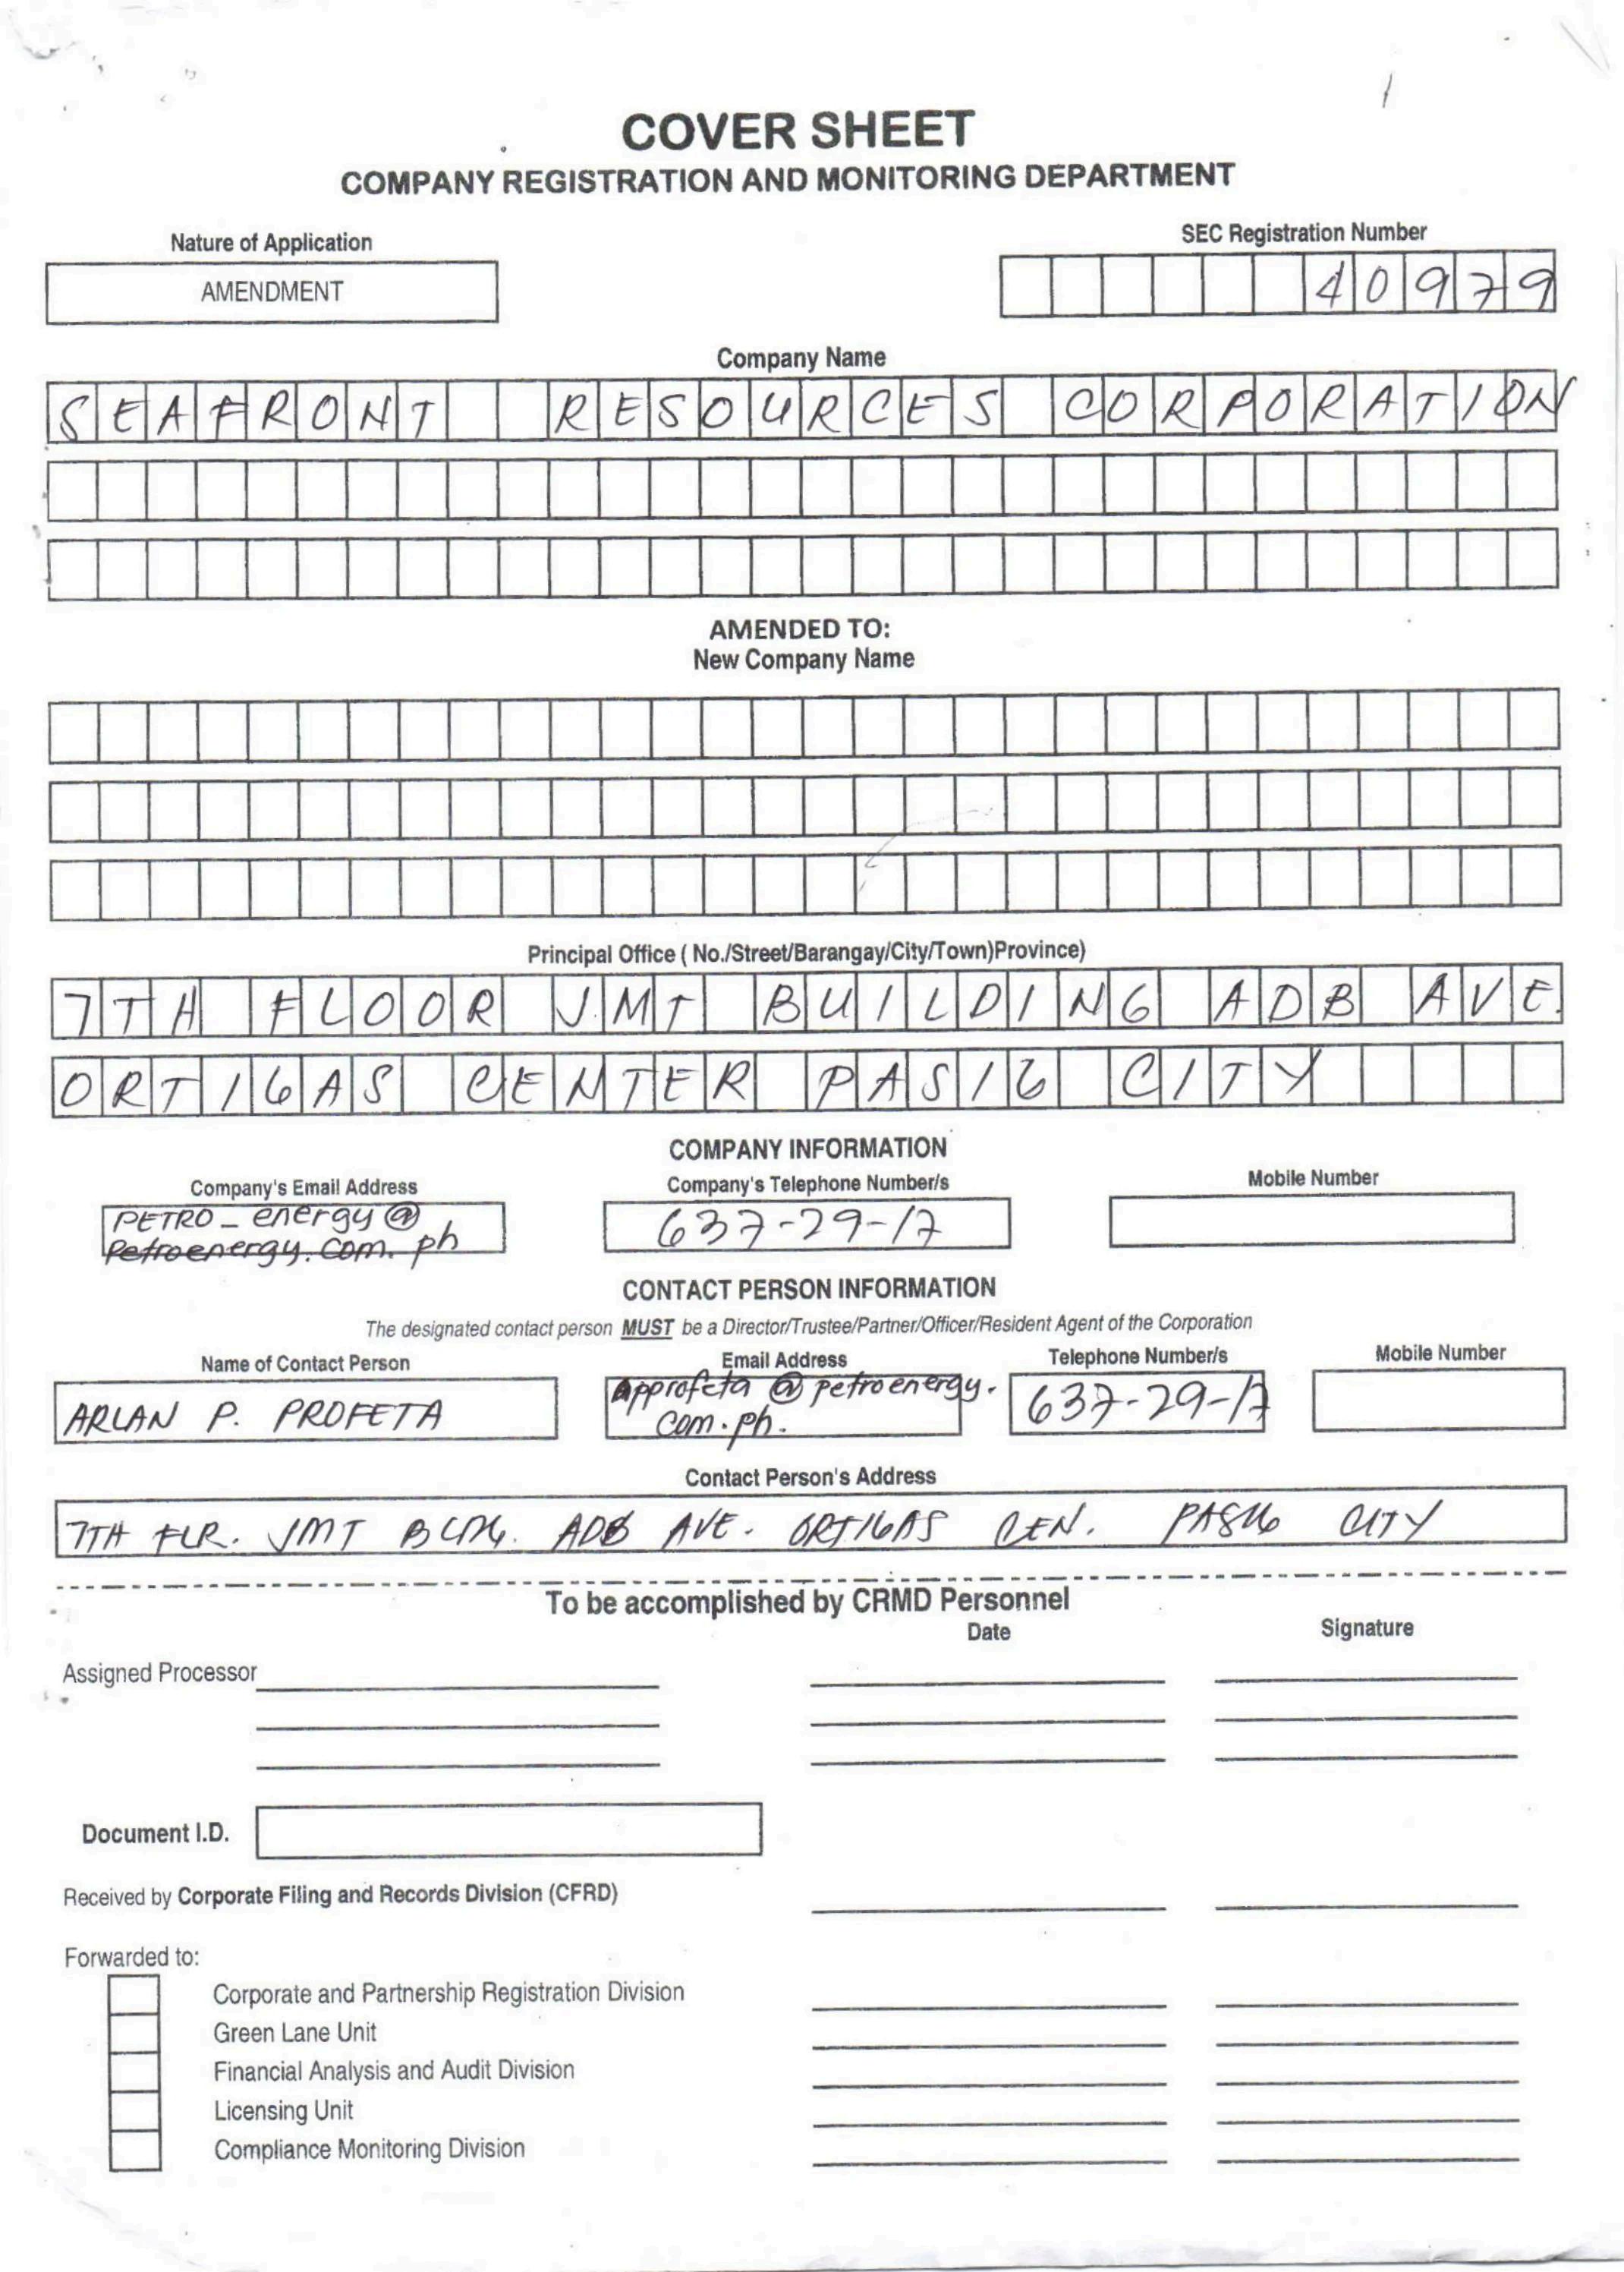 COVER SHEET
COMPANY REGISTRATION AND MONITORING DEPARTMENT
Nature of Application
SEC Registration Number
AMENDMENT
40979
Company Name
SEAFRONT RESOURCES CORPORATION
AMENDED TO:
New Company Name
Principal Office ( No./Street/Barangay/City/Town)Province)
7TH FLOOR JMT BUILDING ADB AVE.
ORTIGAS CENTER PASIG CITY
COMPANY INFORMATION
Company's Email Address
Company's Telephone Number/s
Mobile Number
PETRO_energy@
Petroenergy.com.ph
637-29-17
CONTACT PERSON INFORMATION
The designated contact person MUST be a Director/Trustee/Partner/Officer/Resident Agent of the Corporation
Name of Contact Person
Email Address
Telephone Number/s
Mobile Number
ARLAN P. PROFETA
approfeta@petroenergy.
com.ph.
637-29-17
Contact Person's Address
7TH FLR. JMT BLDG. ADB AVE. ORTIGAS CEN. PASIG CITY
To be accomplished by CRMD Personnel
Date
Signature
Assigned Processor
Document I.D.
Received by Corporate Filing and Records Division (CFRD)
Forwarded to:
Corporate and Partnership Registration Division
Green Lane Unit
Financial Analysis and Audit Division
Licensing Unit
Compliance Monitoring Division